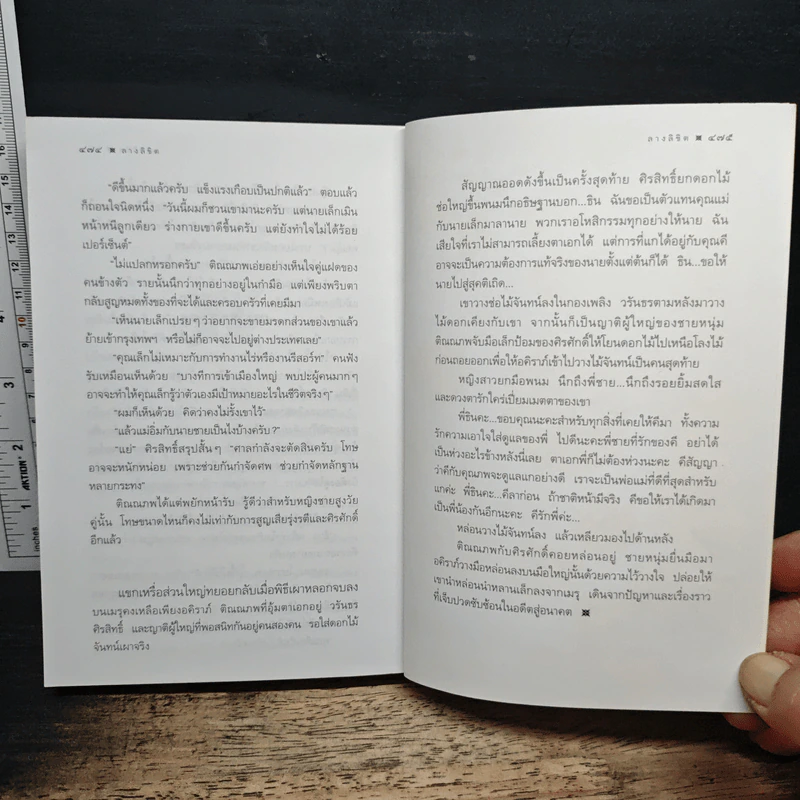 ๔๗๔ ลางลิขิต
"ดีขึ้นมากแล้วครับ แข็งแรงเกือบเป็นปกติแล้ว" ตอบแล้ว
ก็ถอนใจนิดหนึ่ง "วันนี้ผมก็ชวนเขามานะครับ แต่นายเล็กเมิน
หน้าหนีลูกเดียว ร่างกายเขาดีขึ้นครับ แต่ยังทำใจไม่ได้ร้อย
เปอร์เซ็นต์"
"ไม่แปลกหรอกครับ" ติณณภพเอ่ยอย่างเห็นใจคู่แฝดของ
คนข้างตัว รายนั้นนึกว่าทุกอย่างอยู่ในกำมือ แต่เพียงพริบตา
กลับสูญหมดทั้งของที่จะได้และครอบครัวที่เคยมีมา
"เห็นนายเล็กเปรยๆ ว่าอยากจะขายมรดกส่วนของเขาแล้ว
ย้ายเข้ากรุงเทพฯ หรือไม่ก็อาจจะไปอยู่ต่างประเทศเลย"
"คุณเล็กไม่เหมาะกับการทำงานไร่หรืองานรีสอร์ท" คนฟัง
รับเหมือนเห็นด้วย "บางทีการเข้าเมืองใหญ่ พบปะผู้คนมากๆ
อาจจะทำให้คุณเล็กรู้ว่าตัวเองมีเป้าหมายอะไรในชีวิตจริงๆ"
"ผมก็เห็นด้วย คิดว่าคงไม่รั้งเขาไว้"
"แล้วแม่อิ่มกับนายชายเป็นไงบ้างครับ?"
"แย่" ศิรสิทธิ์สรุปสั้นๆ "ศาลกำลังจะตัดสินครับ โทษ
อาจจะหนักหน่อย เพราะช่วยกันกำจัดศพ ช่วยกำจัดหลักฐาน
หลายกระทง"
ติณณภพได้แต่พยักหน้ารับ รู้ดีว่าสำหรับหญิงชายสูงวัย
คู่นั้น โทษขนาดไหนก็คงไม่เท่ากับการสูญเสียรุ่งรตีและศิรศักดิ์
อีกแล้ว
แขกเหรื่อส่วนใหญ่ทยอยกลับเมื่อพิธีเผาหลอกจบลง
บนเมรุคงเหลือเพียงอคิราภ์ ติณณภพที่อุ้มตาเอกอยู่ วรันธร
ศิรสิทธิ์ และญาติผู้ใหญ่ที่พอสนิทกันอยู่คนสองคน รอใส่ดอกไม้
จันทน์เผาจริง
ลางลิขิต ๔๗๕
สัญญาณออดดังขึ้นเป็นครั้งสุดท้าย ศิรสิทธิ์ยกดอกไม้
ช่อใหญ่ขึ้นพนมนึกอธิษฐานบอก...ธิน ฉันขอเป็นตัวแทนคุณแม่
กับนายเล็กมาลานาย พวกเราอโหสิกรรมทุกอย่างให้นาย ฉัน
เสียใจที่เราไม่สามารถเลี้ยงตาเอกได้ แต่การที่แกได้อยู่กับคุณคี
อาจจะเป็นความต้องการแท้จริงของนายตั้งแต่ต้นก็ได้ ธิน...ขอให้
นายไปสู่สุคติเถิด...
เขาวางช่อไม้จันทน์ลงในกองเพลิง วรันธรตามหลังมาวาง
ไม้ดอกเคียงกับเขา จากนั้นก็เป็นญาติผู้ใหญ่ของชายหนุ่ม
ติณณภพจับมือเล็กป้อมของศิรศักดิ์ให้โยนดอกไม้ไปเหนือโลงไม้
ก่อนถอยออกเพื่อให้อคิราภ์เข้าไปวางไม้จันทน์เป็นคนสุดท้าย
หญิงสาวยกมือพนม นึกถึงพี่ชาย...นึกถึงรอยยิ้มสดใส
และดวงตารักใคร่เปี่ยมเมตตาของเขา
พี่ธินคะ...ขอบคุณนะคะสำหรับทุกสิ่งที่เคยให้คีมา ทั้งความ
รักความเอาใจใส่ดูแลของพี่ ไปดีนะคะพี่ชายที่รักของคี อย่าได้
เป็นห่วงอะไรข้างหลังนี่เลย ตาเอกพี่ก็ไม่ต้องห่วงนะคะ คีสัญญา
ว่าคีกับคุณภพจะดูแลแกอย่างดี เราจะเป็นพ่อแม่ที่ดีที่สุดสำหรับ
แกค่ะ พี่ธินคะ...คีลาก่อน ถ้าชาติหน้ามีจริง คีขอให้เราได้เกิดมา
เป็นพี่น้องกันอีกนะคะ คีรักพี่ค่ะ...
หล่อนวางไม้จันทน์ลง แล้วเหลียวมองไปด้านหลัง
ติณณภพกับศิรศักดิ์คอยหล่อนอยู่ ชายหนุ่มยื่นมือมา
อคิราภ์วางมือหล่อนลงบนมือใหญ่นั้นด้วยความไว้วางใจ ปล่อยให้
เขานำหล่อนนำหลานเล็กลงจากเมรุ เดินจากปัญหาและเรื่องราว
ที่เจ็บปวดซับซ้อนในอดีตสู่อนาคต